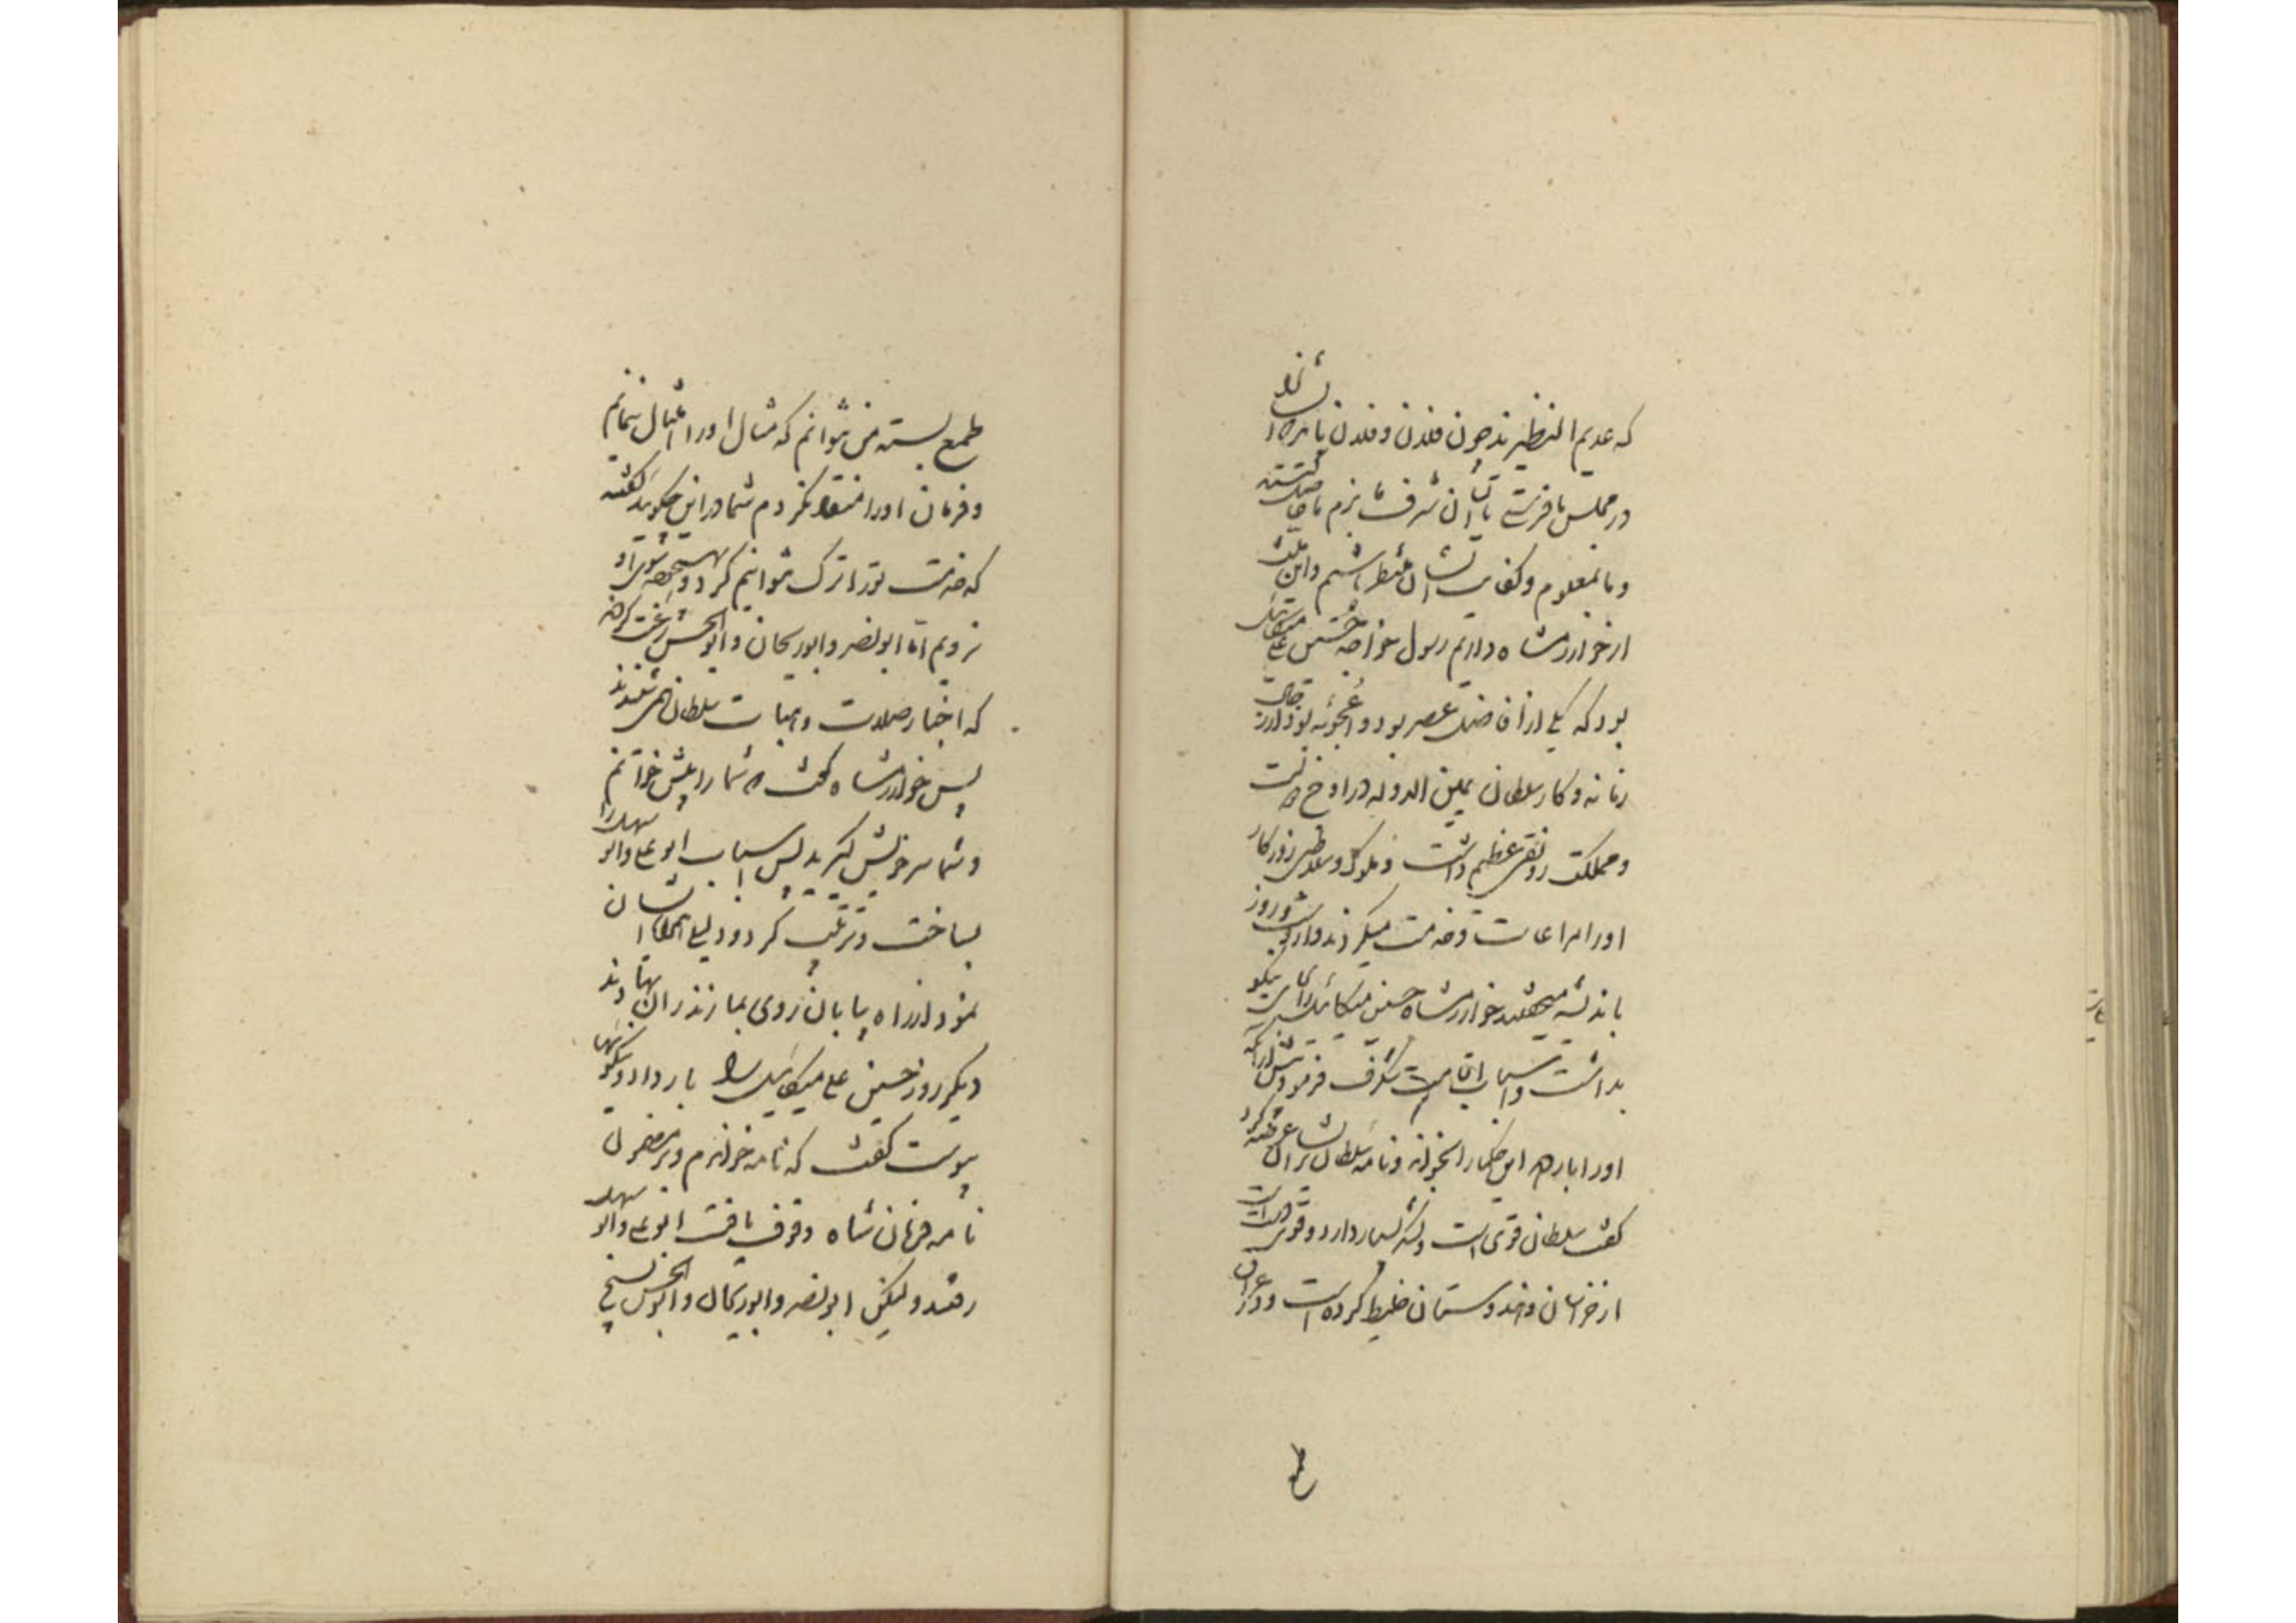 که عدیم النظیرند چون فلان و فلان باید که ایشانرا
در مجلس ما فرستی تا ایشان شرف بزم ما حاصل کنند
و ما بعلوم و کفایت ایشان مستظهر باشیم و این منت
از خوارزمشاه داریم رسول خواجه حسین علی میکائیل
بود که یکی از افاضل عصر بود و اعجوبه بود از رجال
زمانه و کار سلطان یمین الدوله در اوج دولت
و مملکت رونقی عظیم داشت و ملوک و سلاطین روزکار
اورا مراعات و خدمت میکردند و از وی شب و روز
باندیشه میخفتند خوارزمشاه حسین میکائیل را بجای نیکو
بداشت و اسباب اقامت شکرف فرمود پیش از آنکه
اورا بار دهد این حکما را بخواند و نامه سلطان بر ایشان عرضه کرد
کفت سلطان قوی است و لشکر بسیار دارد و قوی دست است
از خراسان و هندوستان ضبط کرده است و در عراق
طمع
طمع بسته من نتوانم که مثال اورا امتثال ننمایم
و فرمان اورا منقاد نکردم شما در این چکوئید کفتند
که خدمت تو را ترک نتوانیم کرد و بهیچوجه سوی او
نرویم اما ابونصر و ابوریحان و ابوالحسن رغبت کردند
که اخبار صلات و هبات سلطان همی شنیدند
پس خوارزمشاه کفت که شما را پیش خوانم
و شما سر خویش کیرید پس اسباب ابوعلی و ابو سهل را
بساخت و ترتیب کرد و دلیلی همراه ایشان
نمود از راه بیابان روی بمازندران نهادند
دیکر روز حسین علی میکائیل را بار داد و نیکوئیها
پیوست کفت که نامه خواندم و بر مضمون
نامه و فرمان شاه وقوف یافت ابوعلی و ابو سهل
رفتند ولیکن ابونصر و ابوریحان و ابوالحسن بسیج